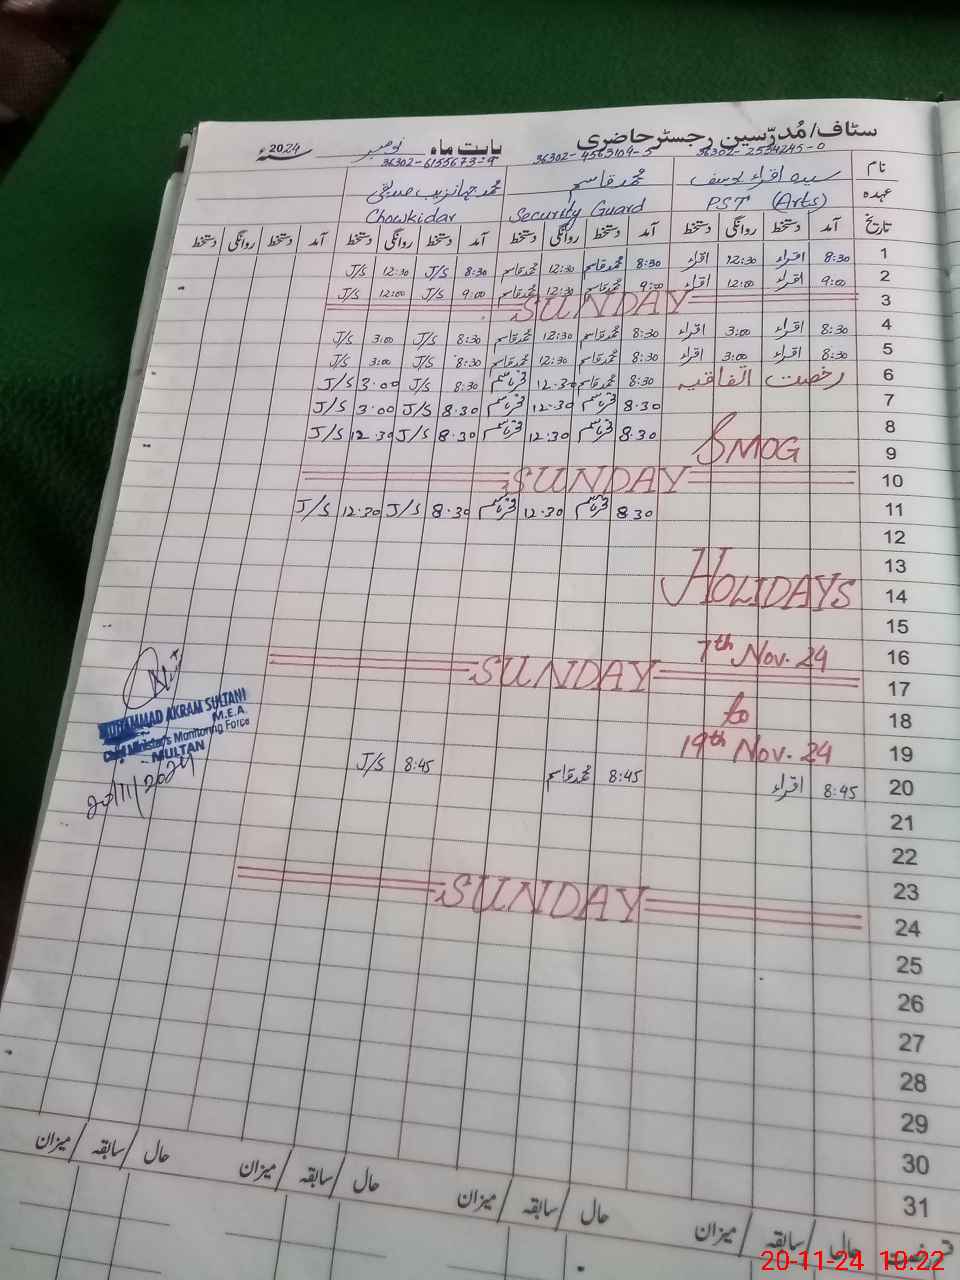 سٹاف/مُدرّسین رجسٹر حاضری بابت ماہ نومبر سنہ 2024ء
36302-2534245-0 36302-4563104-5 36302-6155673-9
نام سیدہ اقراء یوسف محمد قاسم محمد جہانزیب صدیقی
عہدہ PST (Arts) Security Guard Chowkidar
تاریخ آمد دستخط روانگی دستخط آمد دستخط روانگی دستخط آمد دستخط روانگی دستخط آمد دستخط روانگی دستخط
1 8:30 اقراء 12:30 اقراء 8:30 محمد قاسم 12:30 محمد قاسم 8:30 J/S 12:30 J/S
2 9:00 اقراء 12:00 اقراء 9:00 محمد قاسم 12:30 محمد قاسم 9:00 J/S 12:00 J/S
3 SUNDAY
4 8:30 اقراء 3:00 اقراء 8:30 محمد قاسم 12:30 محمد قاسم 8:30 J/S 3:00 J/S
5 8:30 اقراء 3:00 اقراء 8:30 محمد قاسم 12:30 محمد قاسم 8:30 J/S 3:00 J/S
6 رخصت اتفاقیہ 8:30 محمد قاسم 12:30 8:30 J/S 3:00 J/S
7 8:30 12:30 8:30 J/S 3:00 J/S
8 8:30 12:30 8:30 J/S 12:30 J/S
9 SMOG
10 SUNDAY
11 8:30 12:30 8:30 J/S 12:30 J/S
12
13
14 HOLIDAYS
15
16 7th Nov. 24
17 SUNDAY
18 to
19 19th Nov. 24
20 8:45 اقراء 8:45 محمد قاسم 8:45 J/S
21
22
23
24 SUNDAY
25
26
27
28
29
30
31
MUHAMMAD AKRAM SULTANI
M.E.A.
Chief Minister's Monitoring Force
MULTAN
20/11/2024
رخصت حال سابقہ میزان حال سابقہ میزان حال سابقہ میزان حال سابقہ میزان
20-11-24 10:22